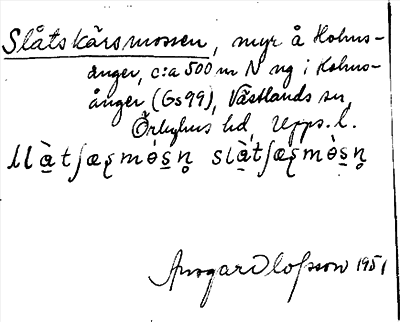 Slåtskärsmossen, myr å Holms-
ånger, c:a 500 m N ng i Holms-
ånger (Gs 99), Västlands sn,
Örbyhus hd, Upps. l.
slɑ̀tʃæʂmòs̠n̥ slɑ̀tʃæʂmòs̠n̥
Ansgar Olofsson 1951